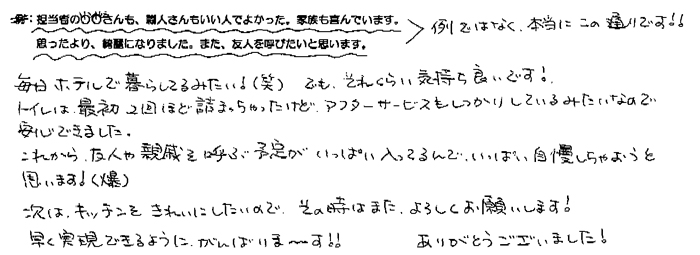 例：担当者の○○さんも、職人さんもいい人でよかった。家族も喜んでいます。
思ったより、綺麗になりました。また、友人を呼びたいと思います。
例ではなく、本当にこの通りです!!
毎日ホテルで暮らしてるみたい!(笑) でも、それくらい気持ち良いです!
トイレは、最初2回ほど詰まっちゃったけど、アフターサービスもしっかりしているみたいなので
安心できました。
これから、友人や親戚を呼ぶ予定がいっぱい入ってるんで、いっぱい自慢しちゃおうと
思います!(爆)
次は、キッチンをきれいにしたいので、その時はまた、よろしくお願いします!
早く実現できるように、がんばりま〜す!! ありがとうございました!